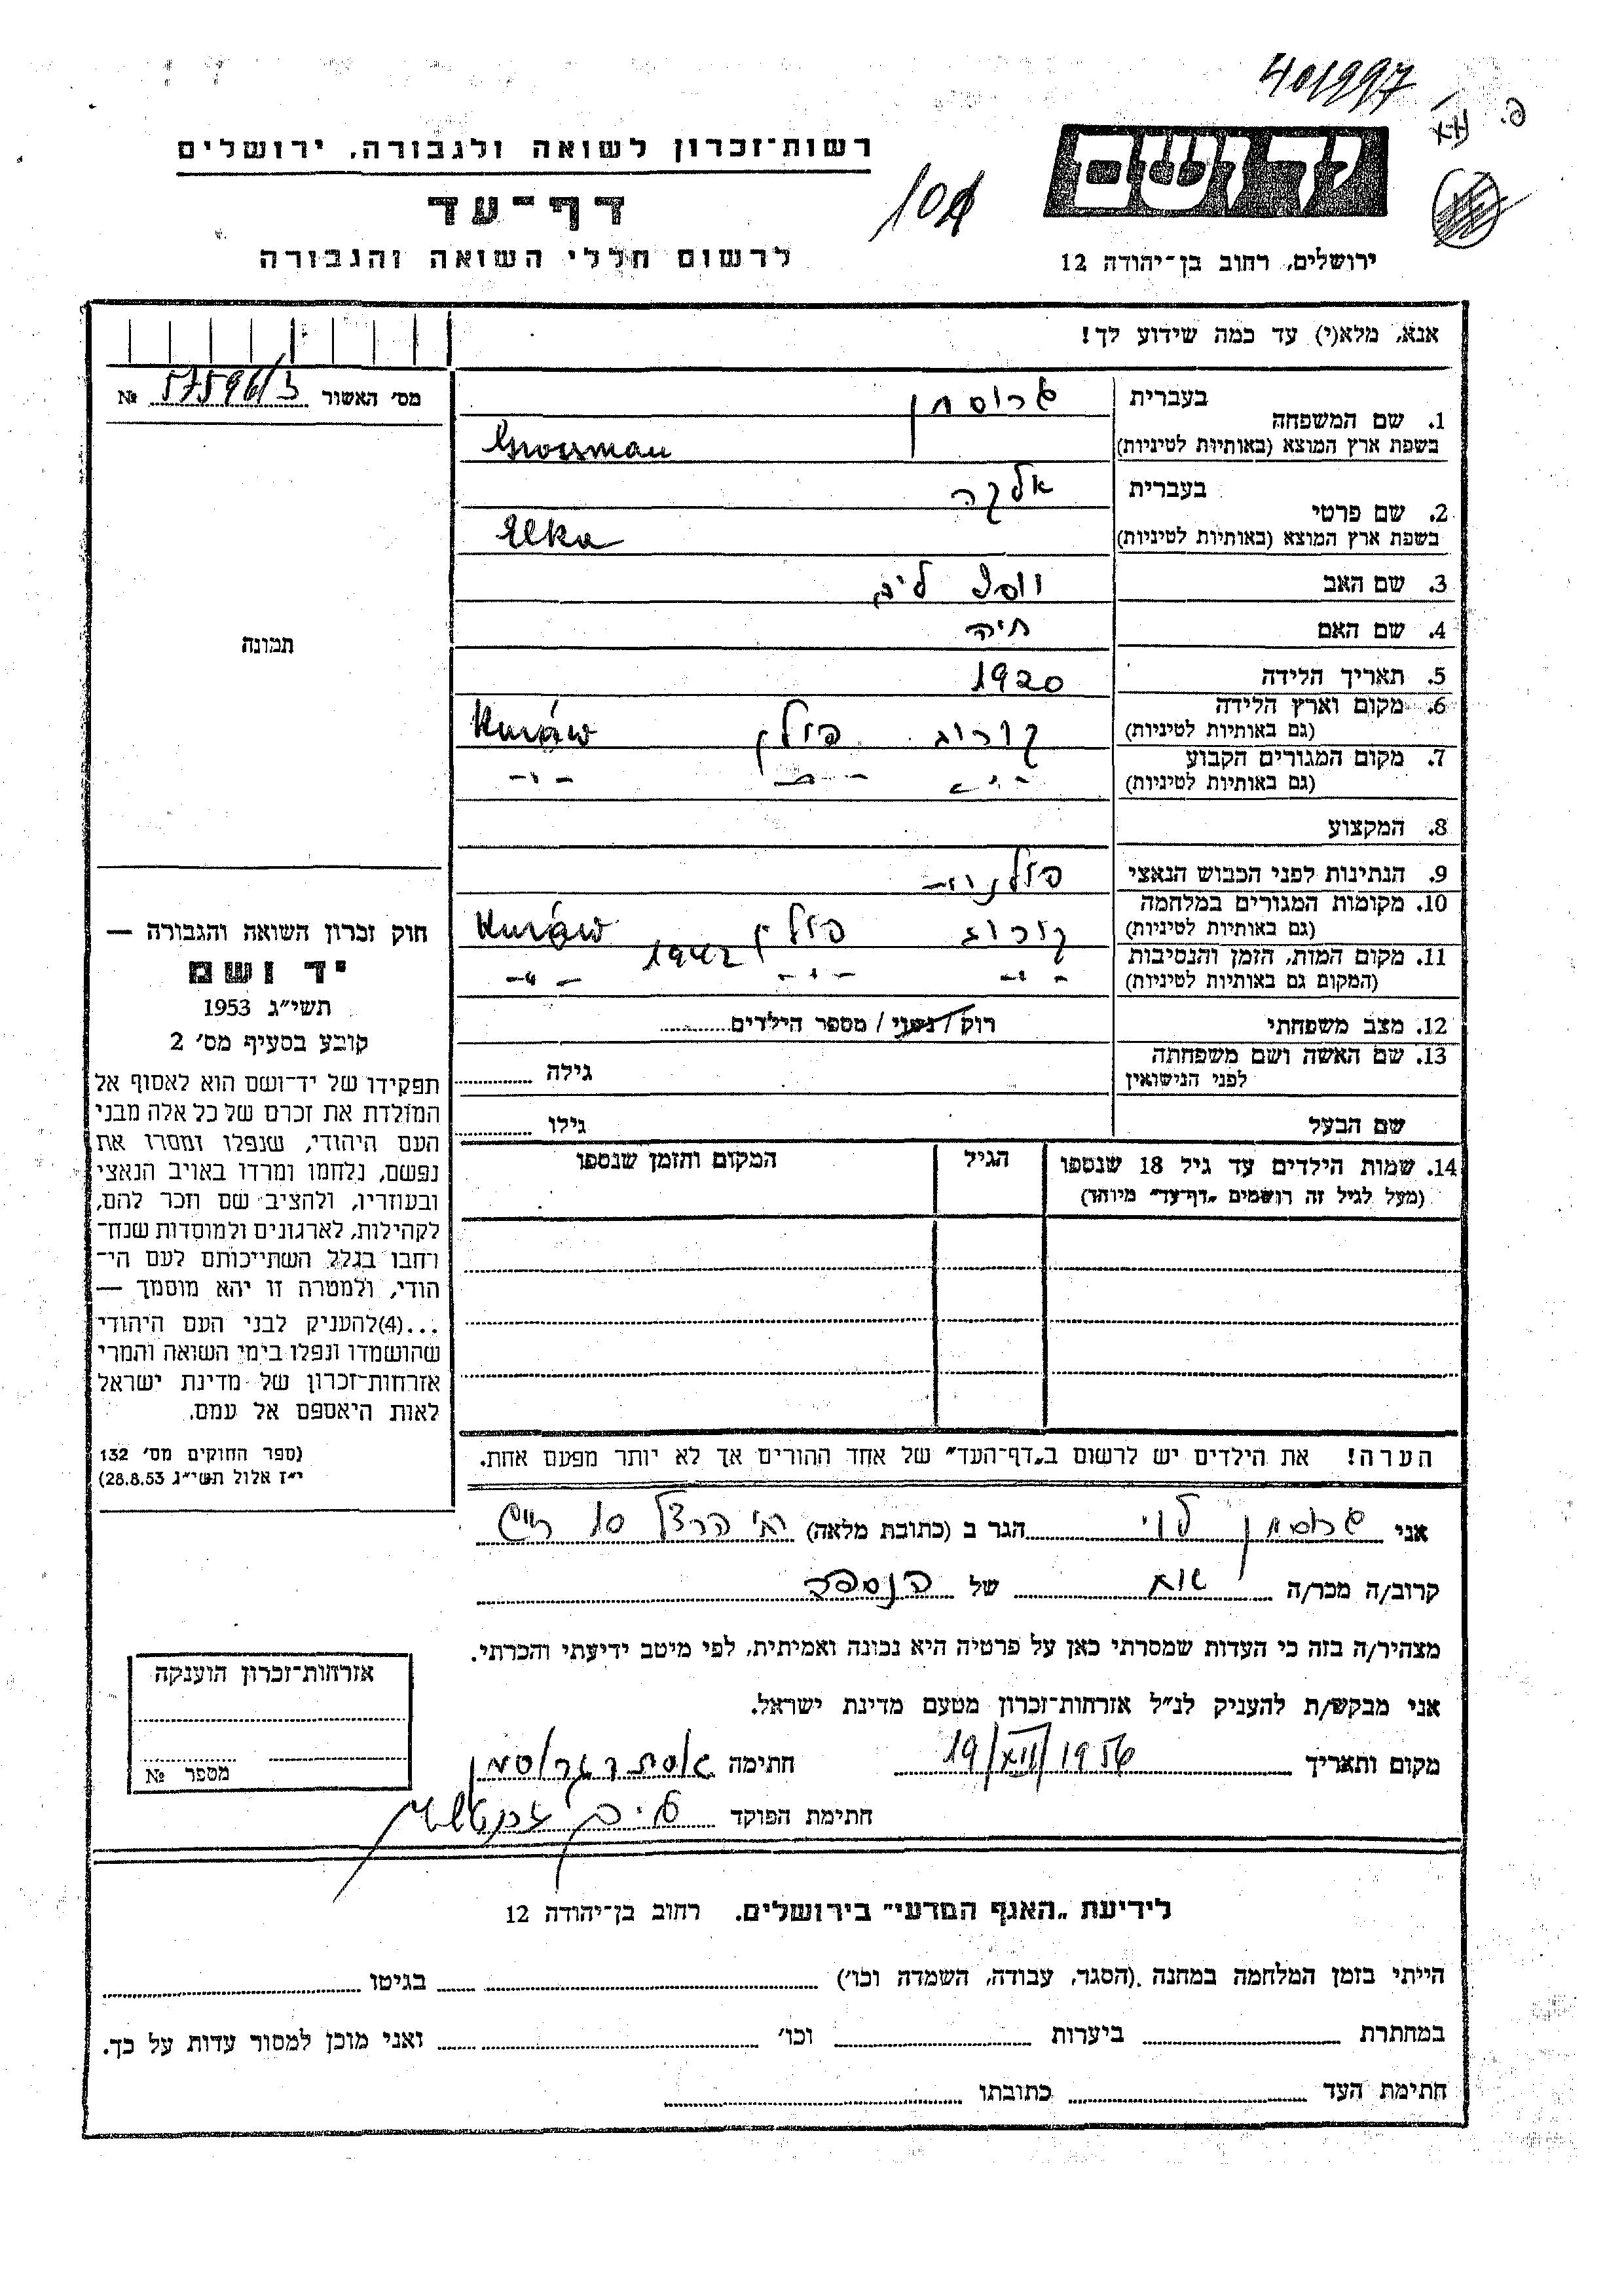 401997
פ.
רשות־זכרון לשואה ולגבורה, ירושלים
יד ושם
דף־עד
לרשום חללי השואה והגבורה
ירושלים, רחוב בן־יהודה 12
אנא, מלא(י) עד כמה שידוע לך!
מס׳ האשור 57596/3 №
1. שם המשפחה
בעברית גרוסמן
בשפת ארץ המוצא (באותיות לטיניות) Grossman
2. שם פרטי
בעברית אלקה
בשפת ארץ המוצא (באותיות לטיניות) Elka
3. שם האב יוסף
4. שם האם חיה
תמונה
5. תאריך הלידה 1920
6. מקום וארץ הלידה קורוב פולין Kurów
(גם באותיות לטיניות)
7. מקום המגורים הקבוע -"- -"- -"-
(גם באותיות לטיניות)
8. המקצוע
9. הנתינות לפני הכבוש הנאצי פולנית
10. מקומות המגורים במלחמה קורוב פולין Kurów
(גם באותיות לטיניות)
11. מקום המות, הזמן והנסיבות -"- -"- 1942 -"-
(המקום גם באותיות לטיניות)
12. מצב משפחתי רוק / נשוי / מספר הילדים
13. שם האשה ושם משפחתה גילה
לפני הנישואין
שם הבעל גילו
14. שמות הילדים עד גיל 18 שנספו הגיל המקום והזמן שנספו
(מעל לגיל זה רושמים „דף־עד” מיוחד)
חוק זכרון השואה והגבורה —
יד ושם
תשי״ג 1953
קובע בסעיף מס׳ 2
תפקידו של יד־ושם הוא לאסוף אל
המולדת את זכרם של כל אלה מבני
העם היהודי, שנפלו ומסרו את
נפשם, נלחמו ומרדו באויב הנאצי
ובעוזריו, ולהציב שם וזכר להם,
לקהילות, לארגונים ולמוסדות שנח־
רבו בגלל השתייכותם לעם הי־
הודי, ולמטרה זו יהא מוסמך —
...(4)להעניק לבני העם היהודי
שהושמדו ונפלו בימי השואה והמרי
אזרחות־זכרון של מדינת ישראל
לאות היאספם אל עמם.
(ספר החוקים מס׳ 132
י״ז אלול תשי״ג 28.8.53)
הערה! את הילדים יש לרשום ב„דף־העד” של אחד ההורים אך לא יותר מפעם אחת.
אני גרוסמן לוי הגר ב (כתובת מלאה) רח׳ הרצל 10
קרוב/ה מכר/ה של הנספה
מצהיר/ה בזה כי העדות שמסרתי כאן על פרטיה היא נכונה ואמיתית, לפי מיטב ידיעתי והכרתי.
אני מבקש/ת להעניק לנ״ל אזרחות־זכרון מטעם מדינת ישראל.
מקום ותאריך 19/XII/1956 חתימה אסתר גרוסמן
חתימת הפוקד
אזרחות־זכרון הוענקה
מספר №
לידיעת „האגף המדעי” בירושלים. רחוב בן־יהודה 12
הייתי בזמן המלחמה במחנה (הסגר, עבודה, השמדה וכו׳) בגיטו
במחתרת ביערות וכו׳ ואני מוכן למסור עדות על כך.
חתימת העד כתובתו